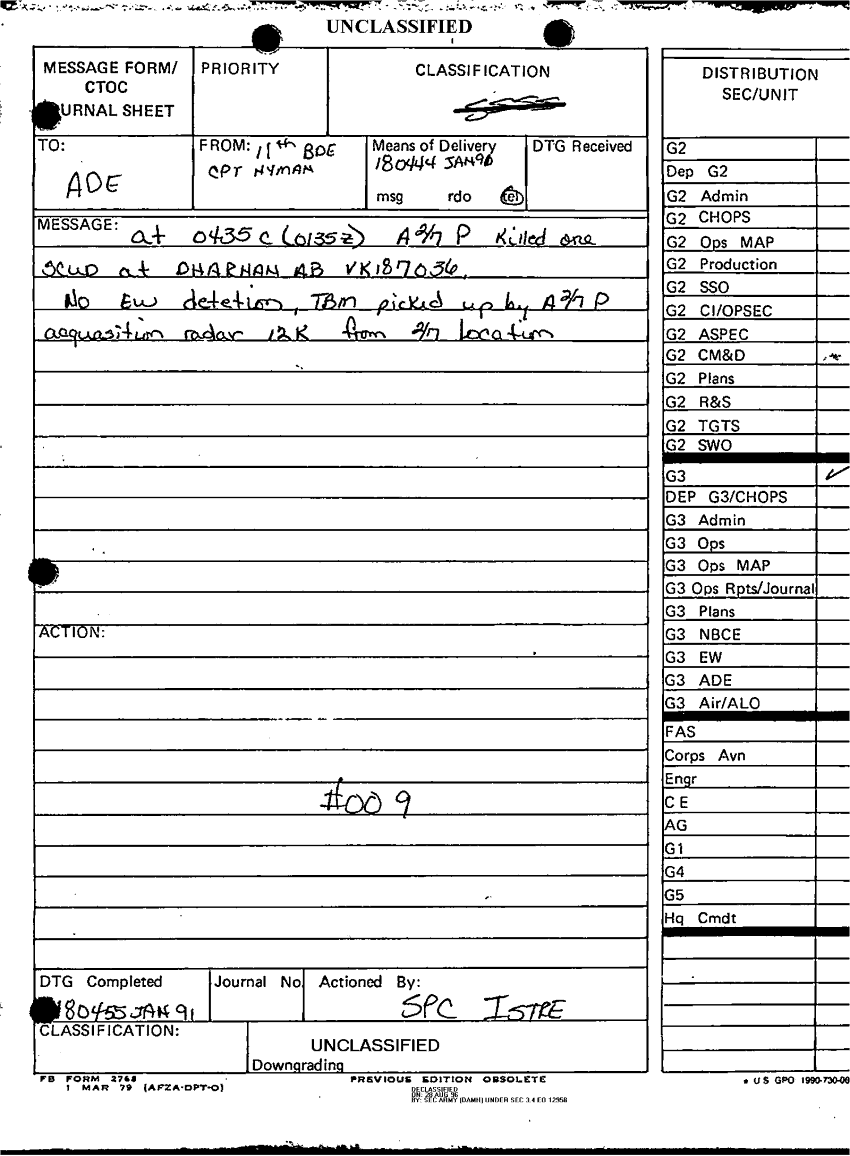 UNCLASSIFIED
MESSAGE FORM/
CTOC
URNAL SHEET
PRIORITY
CLASSIFICATION
TO:
ADE
FROM: 11th BDE
CPT HYMAN
Means of Delivery
180444 JAN90
msg rdo tel
DTG Received
MESSAGE: at 0435 C (0135z) A 2/7 P Killed one
SCUD at DHARHAN AB VK187036,
No EW detetion, TBM picked up by A 2/7 P
acquasition radar 12K from 2/7 location
ACTION:
#009
DTG Completed
180455 JAN 91
Journal No.
Actioned By:
SPC ISTRE
CLASSIFICATION:
UNCLASSIFIED
Downgrading
FB FORM 2768
1 MAR 79 (AFZA-DPT-O)
PREVIOUS EDITION OBSOLETE
DECLASSIFIED
ON: 28 AUG 96
BY: SEC ARMY (DAMH) UNDER SEC 3.4 EO 12958
DISTRIBUTION
SEC/UNIT
G2
Dep G2
G2 Admin
G2 CHOPS
G2 Ops MAP
G2 Production
G2 SSO
G2 CI/OPSEC
G2 ASPEC
G2 CM&D
G2 Plans
G2 R&S
G2 TGTS
G2 SWO
G3 ✓
DEP G3/CHOPS
G3 Admin
G3 Ops
G3 Ops MAP
G3 Ops Rpts/Journal
G3 Plans
G3 NBCE
G3 EW
G3 ADE
G3 Air/ALO
FAS
Corps Avn
Engr
C E
AG
G1
G4
G5
Hq Cmdt
* U S GPO 1990-730-06